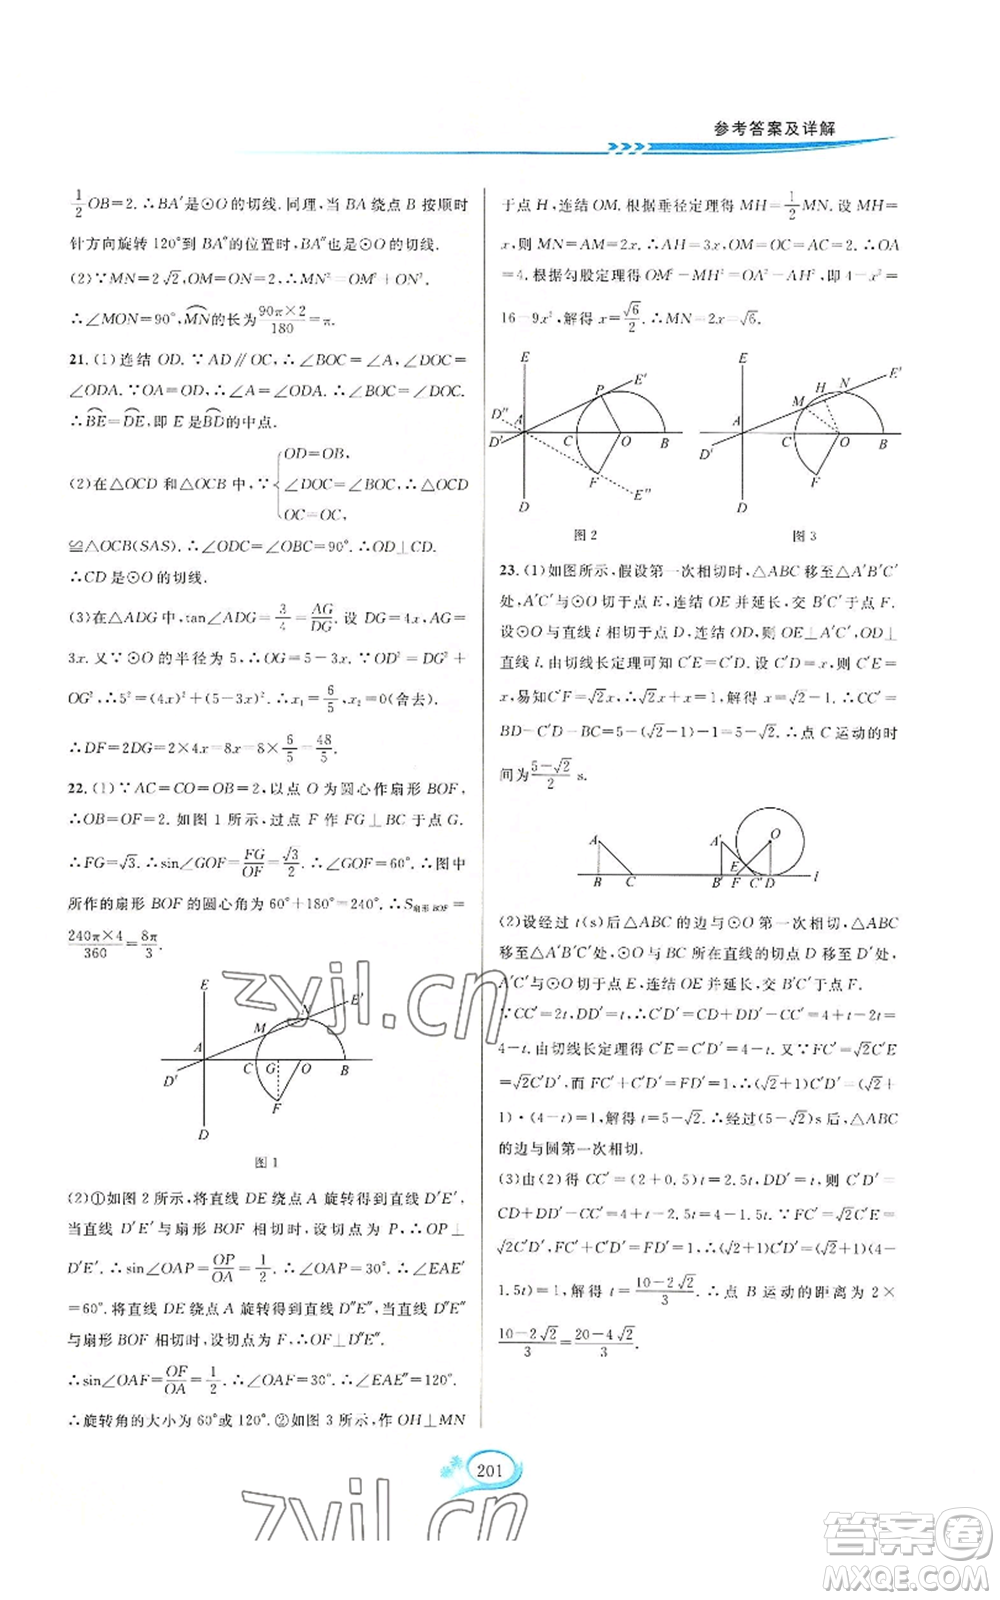 参考答案及详解
1/2 OB=2.∴BA′是⊙O的切线.同理,当 BA 绕点 B 按顺时
针方向旋转120°到 BA″的位置时,BA″也是⊙O的切线.
(2)∵MN=2√2,OM=ON=2,∴MN²=OM²+ON².
∴∠MON=90°,⌒MN的长为 90π×2/180=π.
21.(1)连结 OD.∵AD∥OC,∴∠BOC=∠A,∠DOC=
∠ODA.∵OA=OD,∴∠A=∠ODA.∴∠BOC=∠DOC.
∴⌒BE=⌒DE,即 E 是⌒BD的中点.
(2)在△OCD 和△OCB 中,∵{OD=OB,
∠DOC=∠BOC,∴△OCD
OC=OC,
≌△OCB(SAS).∴∠ODC=∠OBC=90°.∴OD⊥CD.
∴CD 是⊙O的切线.
(3)在△ADG 中,tan∠ADG=3/4=AG/DG.设 DG=4x,AG=
3x.又∵⊙O的半径为 5,∴OG=5-3x.∵OD²=DG²+
OG²,∴5²=(4x)²+(5-3x)².∴x₁=6/5,x₂=0(舍去).
∴DF=2DG=2×4x=8x=8×6/5=48/5.
22.(1)∵AC=CO=OB=2,以点 O 为圆心作扇形 BOF,
∴OB=OF=2.如图 1 所示,过点 F 作 FG⊥BC 于点 G.
∴FG=√3.∴sin∠GOF=FG/OF=√3/2.∴∠GOF=60°.∴图中
所作的扇形 BOF 的圆心角为 60°+180°=240°.∴S扇形BOF=
240π×4/360=8π/3.
E
M
N
E′
A
D′
C
G
O
B
F
D
图 1
(2)①如图 2 所示,将直线 DE 绕点 A 旋转得到直线 D′E′,
当直线 D′E′与扇形 BOF 相切时,设切点为 P,∴OP⊥
D′E′.∴sin∠OAP=OP/OA=1/2.∴∠OAP=30°.∴∠EAE′
=60°.将直线 DE 绕点 A 旋转得到直线 D″E″,当直线 D″E″
与扇形 BOF 相切时,设切点为 F,∴OF⊥D″E″.
∴sin∠OAF=OF/OA=1/2.∴∠OAF=30°.∴∠EAE″=120°.
∴旋转角的大小为 60°或 120°.②如图 3 所示,作 OH⊥MN
于点 H,连结 OM.根据垂径定理得 MH=1/2 MN.设 MH=
x,则 MN=AM=2x,∴AH=3x,OM=OC=AC=2.∴OA
=4.根据勾股定理得 OM²-MH²=OA²-AH²,即 4-x²=
16-9x²,解得 x=√6/2.∴MN=2x=√6.
E
P
E′
D″
A
D′
C
O
B
F
E″
D
图 2
E
H
N
E′
M
A
D′
C
O
B
F
D
图 3
23.(1)如图所示,假设第一次相切时,△ABC 移至△A′B′C′
处,A′C′与⊙O切于点 E,连结 OE 并延长,交 B′C′于点 F.
设⊙O与直线 l 相切于点 D,连结 OD,则 OE⊥A′C′,OD⊥
直线 l.由切线长定理可知 C′E=C′D.设 C′D=x,则 C′E=
x,易知C′F=√2x,∴√2x+x=1,解得 x=√2-1.∴CC′=
BD-BC-C′D=5-1-(√2-1)=5-√2.∴点 C 运动的时
间为 5-√2/2 s.
A
A′
O
E
B
C
B′
F
C′
D
l
(2)设经过 t(s)后△ABC 的边与⊙O第一次相切,△ABC
移至△A′B′C′处,⊙O与 BC 所在直线的切点 D 移至 D′处,
A′C′与⊙O切于点 E,连结 OE 并延长,交 B′C′于点 F.
∵CC′=2t,DD′=t,∴C′D′=CD+DD′-CC′=4+t-2t=
4-t.由切线长定理得 C′E=C′D′=4-t.又∵FC′=√2C′E=
√2C′D′.而 FC′+C′D′=FD′=1,∴(√2+1)C′D′=(√2+
1)·(4-t)=1,解得 t=5-√2.∴经过(5-√2)s 后,△ABC
的边与圆第一次相切.
(3)由(2)得 CC′=(2+0.5)t=2.5t,DD′=t,则 C′D′=
CD+DD′-CC′=4+t-2.5t=4-1.5t.∵FC′=√2C′E=
√2C′D′,FC′+C′D′=FD′=1,∴(√2+1)C′D′=(√2+1)(4-
1.5t)=1,解得 t=10-2√2/3.∴点 B 运动的距离为 2×
10-2√2/3=20-4√2/3.
201
zyjl.cn
zyjl.cn
答案卷
MXQE.COM